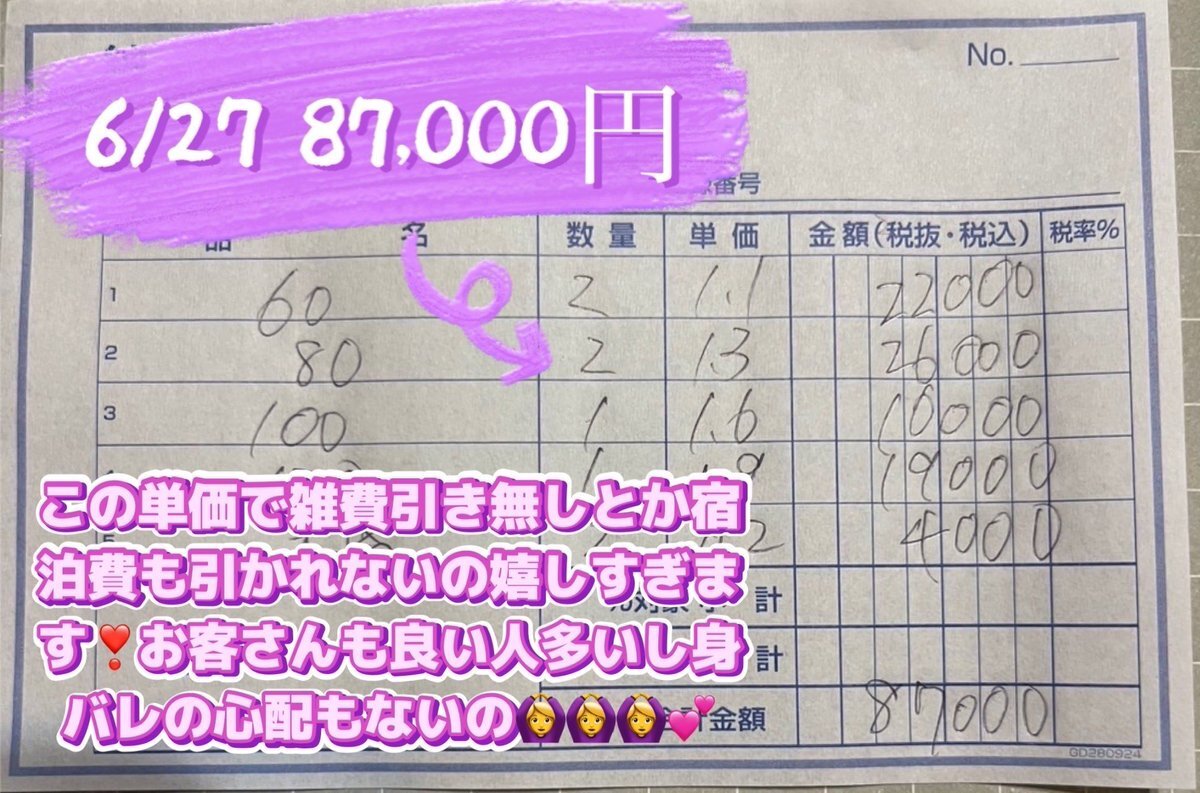 6/27 87,000円
No.
番号
名 数量 単価 金額(税抜・税込) 税率%
1 60 2 1.1 22000
2 80 2 1.3 26000
3 100 1 1.6 16000
1 19000
4000
計
計
合計金額 87000
この単価で雑費引き無しとか宿
泊費も引かれないの嬉しすぎま
す❣️お客さんも良い人多いし身
バレの心配もないの🙆‍♀️🙆‍♀️🙆‍♀️💕
GD280924